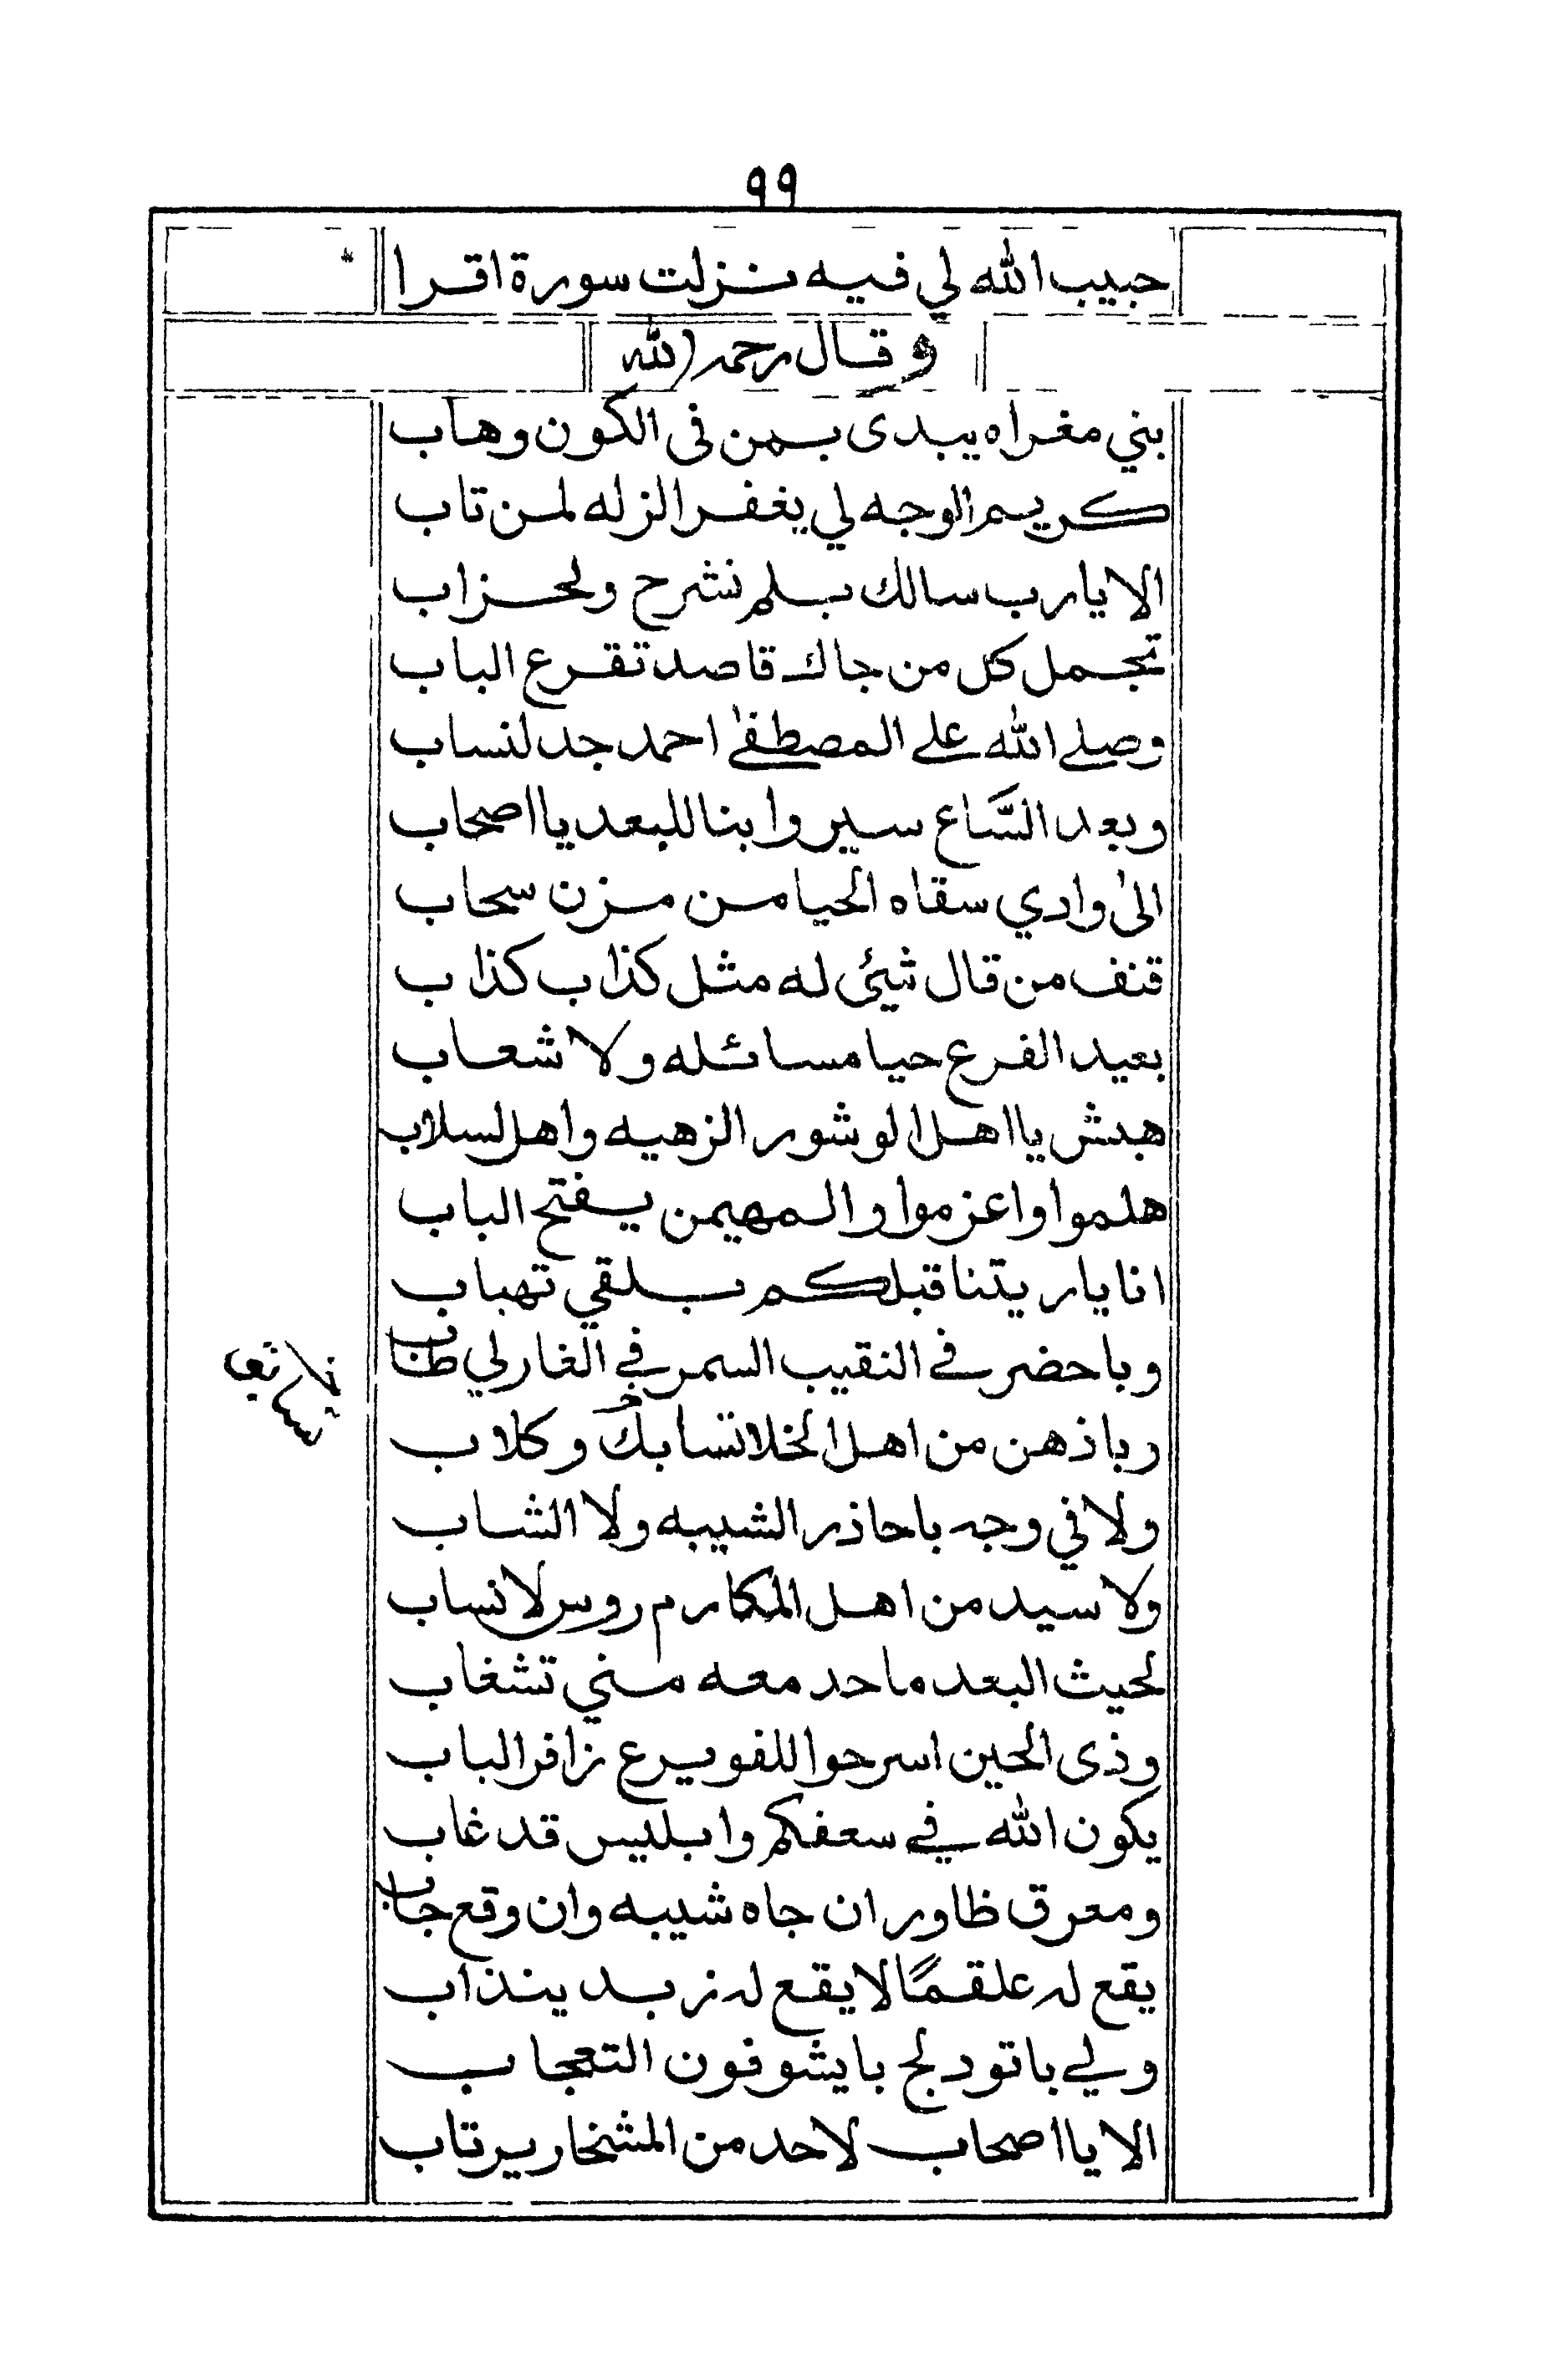 ٩٩
حبيب الله لي فيه نزلت سورة اقرا *
وقال رحمه الله
بني مغراه يبدى بمن فى الكون وهاب
كريم الوجه لي يغفر الزله لمن تاب
الا يارب سالك بلم نشرح ولحزاب
تجمل كل من جاك قاصد تقرع الباب
وصلى الله على المصطفى احمد جد لنساب
وبعد السَّاع سيروا بنا للبعد يا اصحاب
الى وادي سقاه الحيا من مزن سحاب
قنف من قال شيئ له مثل كذاب كذاب
بعيد الفرع حيا مسائله ولا شعاب
هبش يا اهل الوشور الزهيه واهل لسلاب
هلموا واعزموا والمهيمن يفتح الباب
انا ياريتنا قبلكم بلقي تهباب
وباحضر في النقيب السمر في الغار لي طناب
رباذهن من اهل الخلا تسابك وكلاب
ولا في وجه باحاذر الشيبه ولا الشاب
ولا سيد من اهل المكارم روس لانساب
لحيث البعد ماحد معه مني تشغاب
وذى الحين اسرحوا للفويرع زافر الباب
يكون الله في سعفكم وابليس قد غاب
ومعرق ظاور ان جاه شيبه وان وقع جاب
يقع له علقمًا لا يقع له زبد ينذاب
ولي باتودلج بايشوفون التعجاب
الا يا اصحاب لاحد من المشخار يرتاب